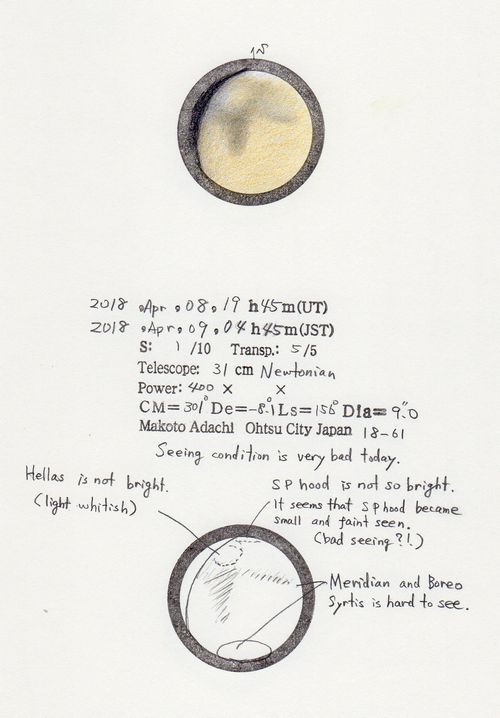 1S
2018 . Apr . 08 . 19 h 45m (UT)
2018 . Apr . 09 . 04 h 45m (JST)
S: 1 /10 Transp.: 5/5
Telescope: 31 cm Newtonian
Power: 400 × ×
CM=301° De=-8.°1 Ls=156° Dia=9."0
Makoto Adachi Ohtsu City Japan 18-61
Seeing condition is very bad today.
Hellas is not bright.
(light whitish)
SP hood is not so bright.
It seems that SP hood became
small and faint seen.
(bad seeing?!.)
Meridian and Boreo
Syrtis is hard to see.